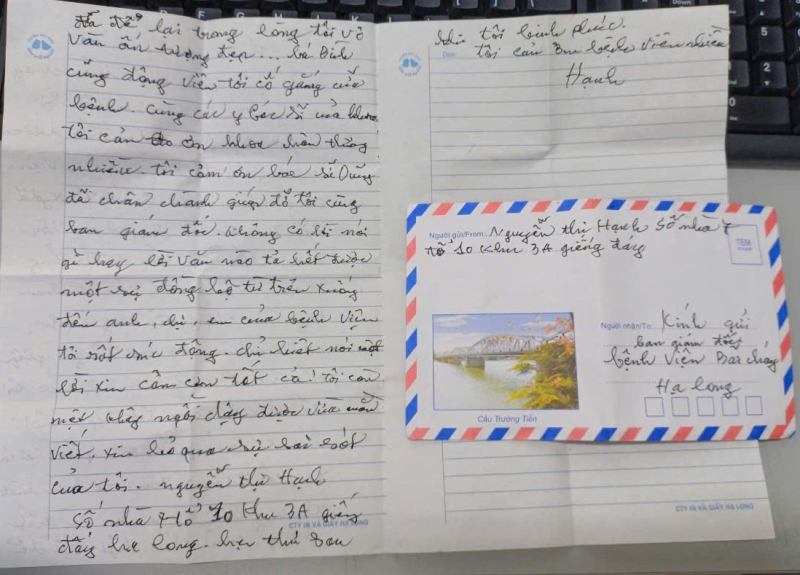 đã để lại trong lòng tôi vô
vàn ấn tượng đẹp... bé Bình
cũng động viên tôi cố gắng của
bệnh. cùng các y bác sĩ của khoa
tôi cảm ơn khoa chấn thương
nhiều. tôi cảm ơn bác sĩ Dũng
đã chân thành giúp đỡ tôi cùng
ban giám đốc. không có lời nói
gì hay lời văn nào tả hết được
một sự đồng bộ từ trên xuống
đến anh, chị, em của bệnh viện
tôi rất xúc động. chỉ biết nói một
lời xin cảm ơn tất cả! Tôi còn
mệt không ngồi dậy được vừa nằm
viết, xin bỏ qua sự sai sót
của tôi. nguyễn thị Hạnh
số nhà 7 tổ 10 khu 3A giếng
đáy hạ long. hẹn thư sau
CTY IN VÀ GIẤY HẠ LONG
tôi bình phục.
tôi cảm ơn bệnh viện nhiều
Hạnh
Người gửi/From: Nguyễn thị Hạnh số nhà 7
tổ 10 khu 3A giếng đáy
TEM
Người nhận/To: Kính gửi
ban giám đốc
bệnh viện Bãi cháy
Hạ long
Cầu Trường Tiền
CTY IN VÀ GIẤY HẠ LONG